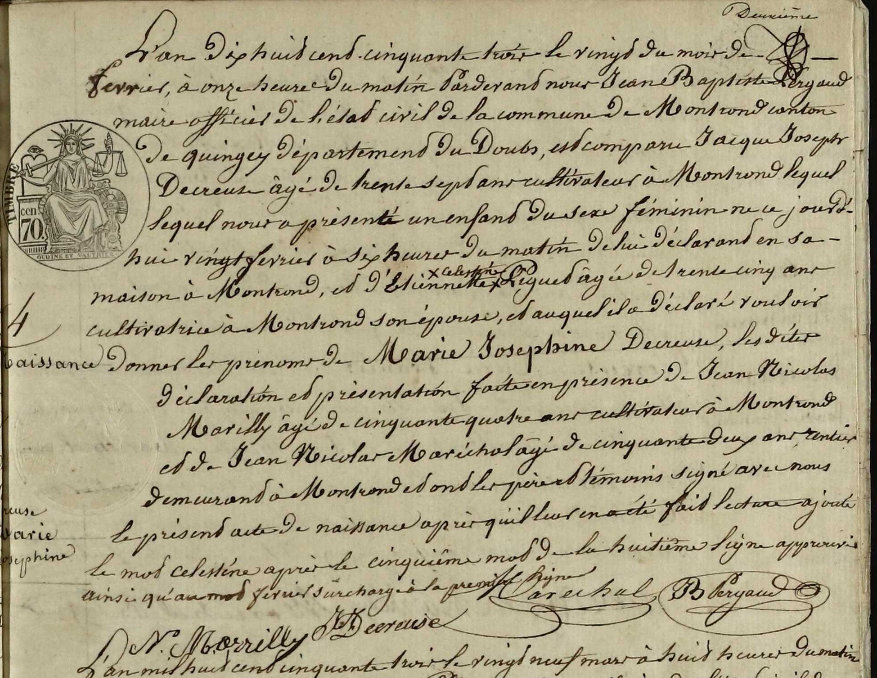 Deuxième
L'an dix huit cent cinquante trois le vingt du mois de
fevrier, à onze heure du matin Pardevant nous Jean Baptiste Pergaud
maire officier de l'état civil de la commune de Montrond canton
de quingey département du Doubs, est comparu Jacque Joseph
Decreuse âgé de trente sept ans cultivateur à Montrond lequel
lequel nous a présenté un enfant du sexe féminin ne ce jourd'-
hui vingt fevrier à six heures du matin de lui déclarant en sa -
maison à Montrond, et d'Etiennette x celestine x Piquet âgée de trente cinq ans
cultivatrice à Montrond son épouse, et auquel il a déclaré vouloir
donner les prenoms de Marie Josephine Decreuse, les dites
déclaration et présentation faite en présence de Jean Nicolas
Marilly âgé de cinquante quatre ans cultivateur à Montrond
et de Jean Nicolas Maréchal âgé de cinquante deux ans rentier
demeurant à Montrond et ont les père et témoins signé avec nous
le présent acte de naissance après qu'il leur en a été fait lecture ajouté
le mot celestine après le cinquième mot de la huitième ligne approuvé
ainsi qu'au mot fevrier surchargé à la première ligne
Marechal B Pergaud
N. Marrilly JJ Decreuse
L'an mil huit cent cinquante trois le vingt neuf mars à huit heures du matin
TIMBRE
cen
70
4
Naissance
reuse
Marie
osephine